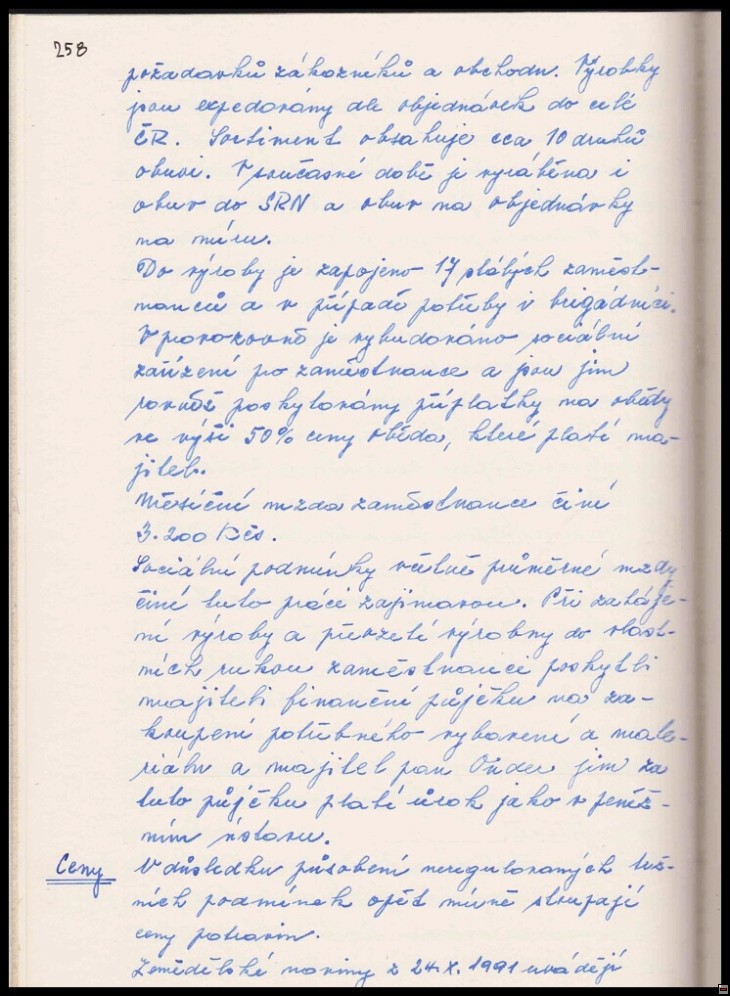 258
požadavků zákazníků a obchodu. Výrobky
jsou expedovány dle objednávek do celé
ČR. Sortiment obsahuje cca 10 druhů
obuvi. V současné době je vyráběna i
obuv do SRN a obuv na objednávky
na míru.
Do výroby je zapojeno 17 stálých zaměst-
nanců a v případě potřeby i brigádníci.
V provozovně je vybudováno sociální
zařízení pro zaměstnance a jsou jim
rovněž poskytovány příplatky na obědy
ve výši 50% ceny oběda, které platí ma-
jitel.
Měsíční mzda zaměstnance činí
3.200 Kčs.
Sociální podmínky včetně průměrné mzdy
činí tuto práci zajímavou. Při zaháje-
ní výroby a převzetí výrobny do vlast-
ních rukou zaměstnanci poskytli
majiteli finanční půjčku na za-
koupení potřebného vybavení a mate-
riálu a majitel pan jim za
tuto půjčku platí úrok jako v peněž-
ním ústavu.
Ceny V důsledku působení neregulovaných trž-
ních podmínek opět mírně stoupají
ceny potravin.
Zemědělské noviny z 24.X.1991 uvádějí